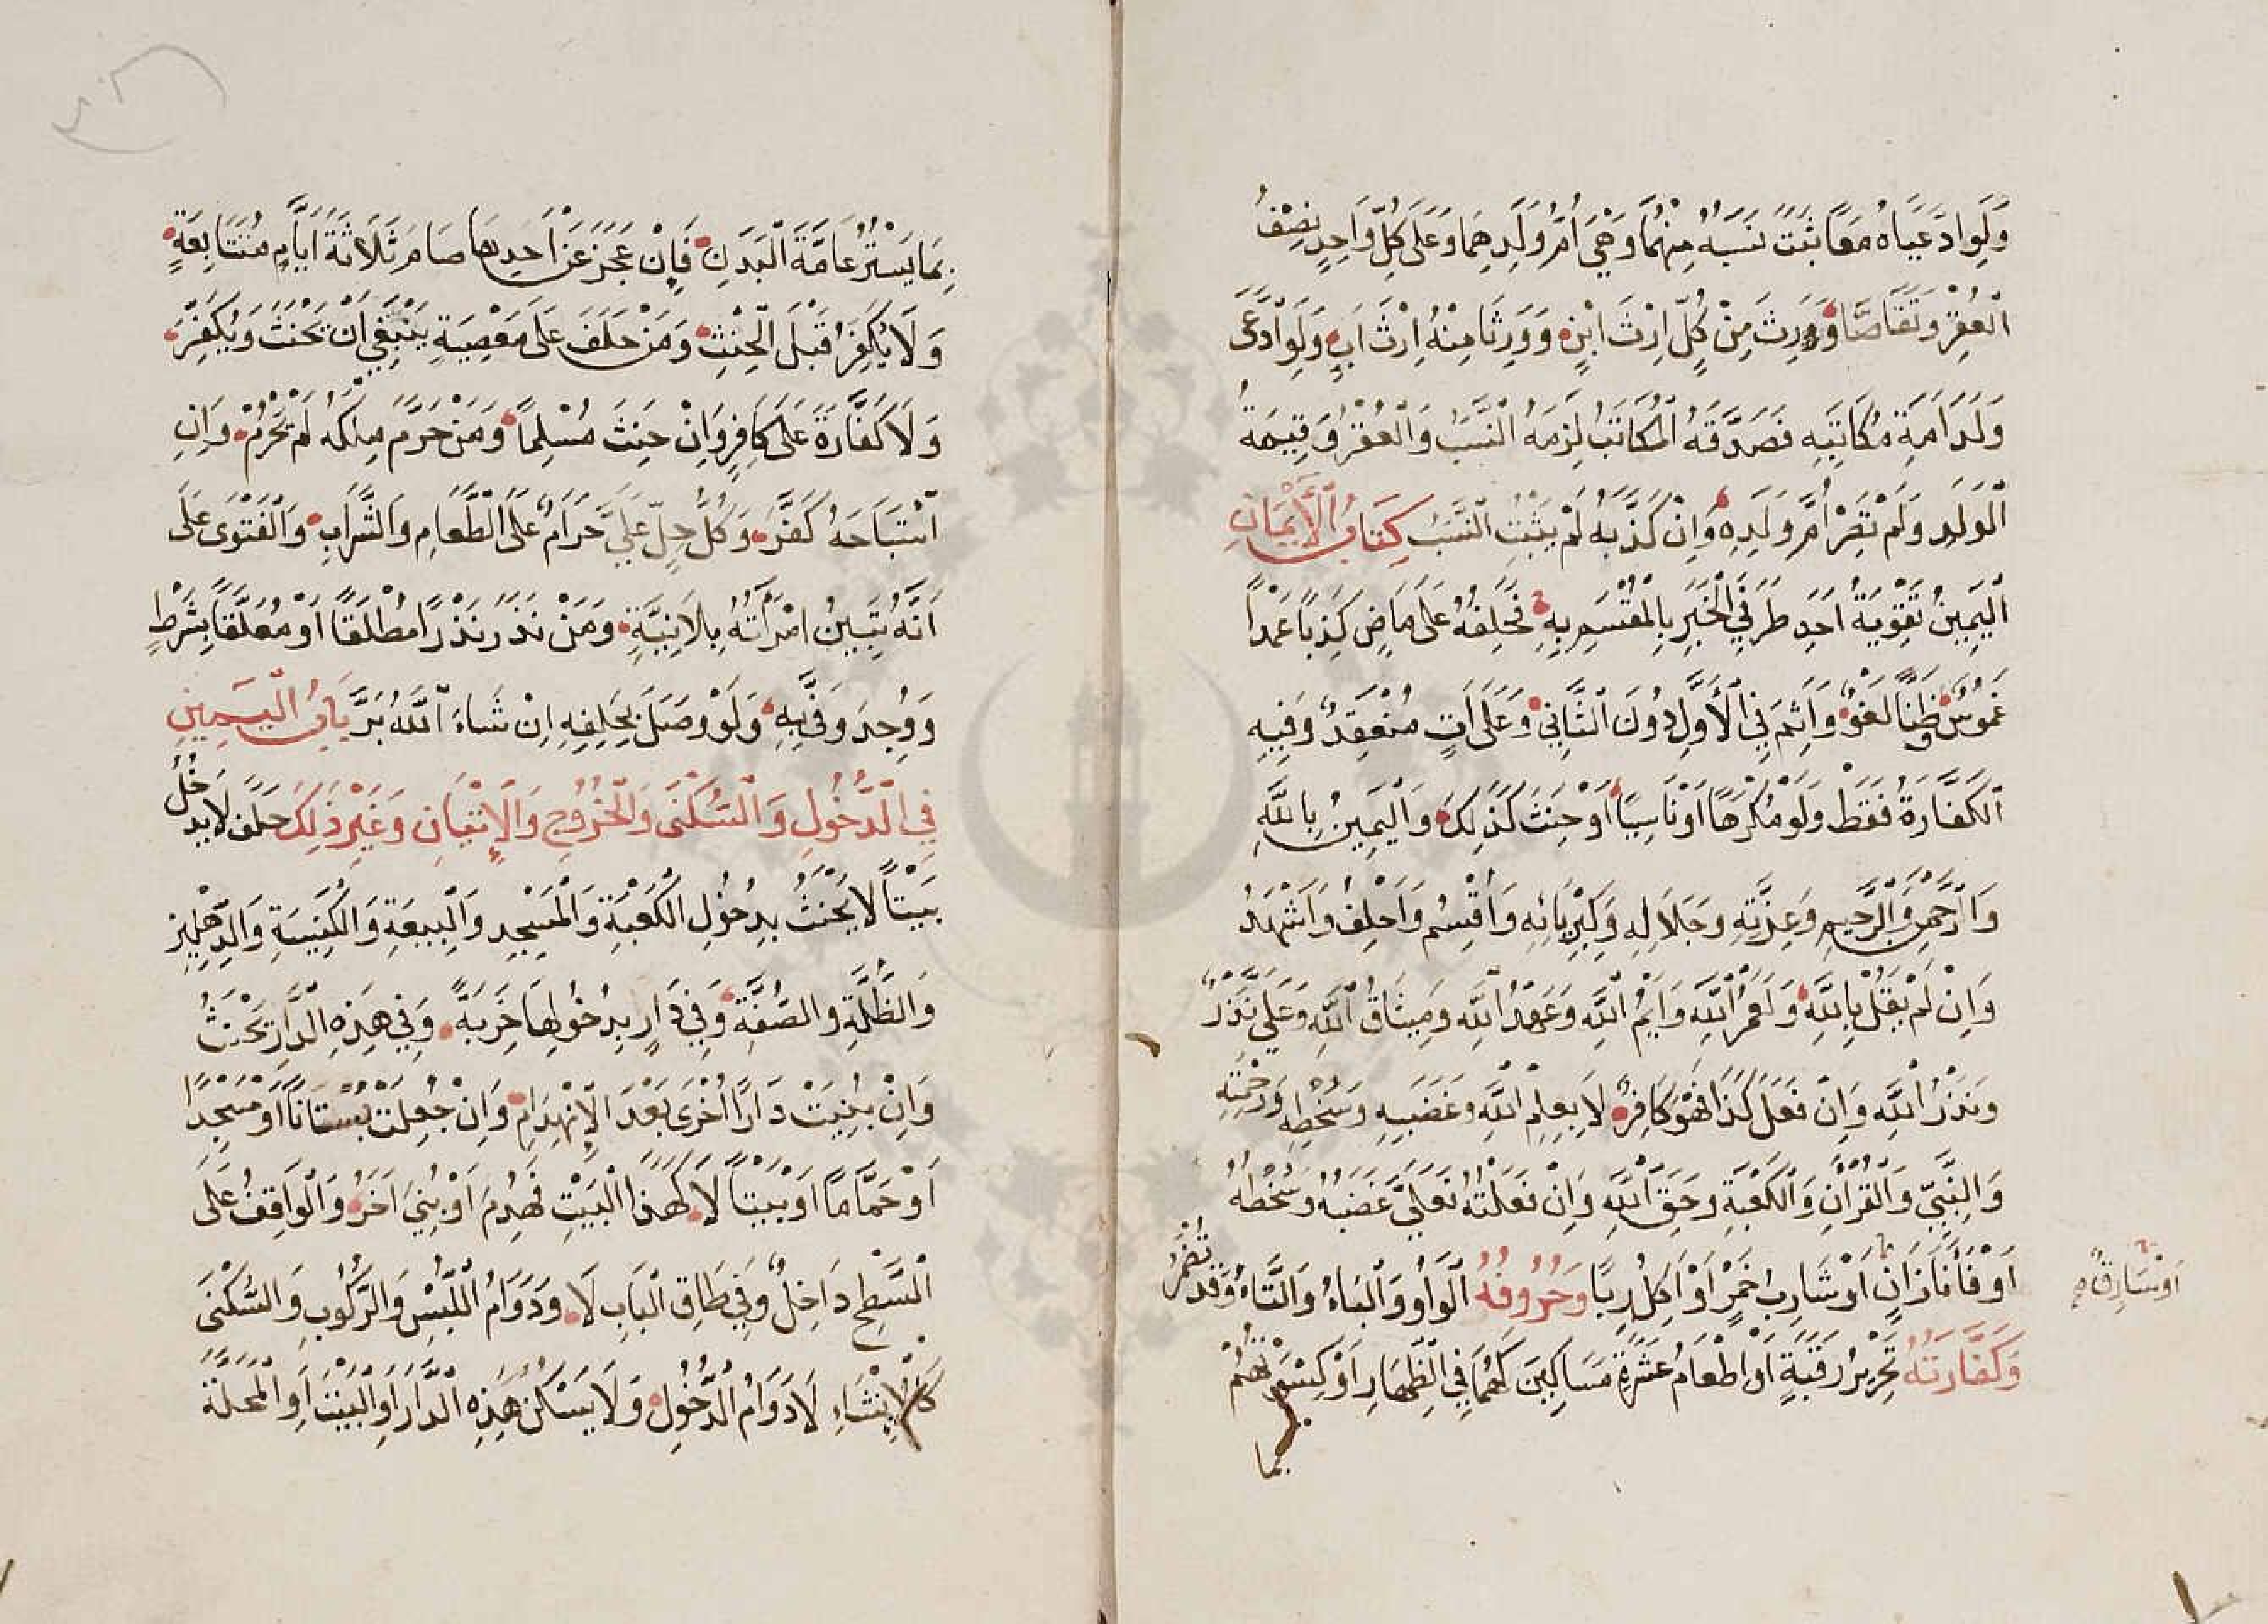 وَلَوِادَّعَيَاهُ مَعًا ثَبَتَ نَسَبُهُ مِنْهُمَا وَهِيَ اُمُّ وَلَدِهِمَا وَعَلَى كُلِّ وَاحِدٍ نِصْفُ
الْعُقْرِ وَتَقَاصَّا وَوَرِثَ مِنْ كُلٍّ اِرْثَ ابْنٍ وَوَرِثَا مِنْهُ اِرْثَ اَبٍ وَلَوِادَّعَى
وَلَدَ اَمَةِ مُكَاتَبِهِ فَصَدَّقَهُ الْمُكَاتَبُ لَزِمَهُ النَّسَبُ وَالْعُقْرُ وَقِيمَةُ
الْوَلَدِ وَلَمْ تَصِرْ اُمَّ وَلَدِهِ وَاِنْ كَذَّبَهُ لَمْ يَثْبُتِ النَّسَبُ كِتَابُ الْاَيْمَانِ
اَلْيَمِينُ تَقْوِيَةُ اَحَدِ طَرَفَيِ الْخَبَرِ بِالْمُقْسَمِ بِهِ فَحَلِفُهُ عَلَى مَاضٍ كَذِبًا عَمْدًا
غَمُوسٌ وَظَنًّا لَغْوٌ وَاَثِمَ فِي الْاَوَّلِ دُونَ الثَّانِي وَعَلَى اٰتٍ مُنْعَقِدٌ وَفِيهِ
الْكَفَّارَةُ فَقَطْ وَلَوْ مُكْرَهًا اَوْ نَاسِيًا اَوْ حَنِثَ كَذٰلِكَ وَالْيَمِينُ بِاللّٰهِ
وَالرَّحْمٰنِ وَالرَّحِيمِ وَعِزَّتِهِ وَجَلَالِهِ وَكِبْرِيَائِهِ وَاُقْسِمُ وَاَحْلِفُ وَاَشْهَدُ
وَاِنْ لَمْ يَقُلْ بِاللّٰهِ وَلَعَمْرُ اللّٰهِ وَايْمُ اللّٰهِ وَعَهْدُ اللّٰهِ وَمِيثَاقُ اللّٰهِ وَعَلَيَّ نَذْرٌ
وَنَذْرُ اللّٰهِ وَاِنْ فَعَلَ كَذَا فَهُوَ كَافِرٌ لَا بِعِلْمِ اللّٰهِ وَغَضَبِهِ وَسَخَطِهِ وَرَحْمَتِهِ
وَالنَّبِيِّ وَالْقُرْاٰنِ وَالْكَعْبَةِ وَحَقِّ اللّٰهِ وَاِنْ فَعَلْتُهُ فَعَلَيَّ غَضَبُهُ وَسَخَطُهُ
اَوْ فَاَنَا زَانٍ اَوْ شَارِبُ خَمْرٍ اَوْ اٰكِلُ رِبًا وَحُرُوفُهُ الْوَاوُ وَالْبَاءُ وَالتَّاءُ وَقَدْ تُضْمَرُ
اَوْ سَارِقٌ صح
وَكَفَّارَتُهُ تَحْرِيرُ رَقَبَةٍ اَوْ اِطْعَامُ عَشَرَةِ مَسَاكِينَ كَهُمَا فِي الظِّهَارِ اَوْ كِسْوَتُهُمْ
بما
بِمَا يَسْتُرُ عَامَّةَ الْبَدَنِ فَاِنْ عَجَزَ عَنْ اَحَدِهَا صَامَ ثَلَاثَةَ اَيَّامٍ مُتَتَابِعَةٍ
وَلَا يُكَفِّرُ قَبْلَ الْحِنْثِ وَمَنْ حَلَفَ عَلَى مَعْصِيَةٍ يَنْبَغِي اَنْ يَحْنَثَ وَيُكَفِّرَ
وَلَا كَفَّارَةَ عَلَى كَافِرٍ وَاِنْ حَنِثَ مُسْلِمًا وَمَنْ حَرَّمَ مِلْكَهُ لَمْ يَحْرُمْ وَاِنِ
اسْتَبَاحَهُ كَفَّرَ وَكُلُّ حِلٍّ عَلَيَّ حَرَامٌ عَلَى الطَّعَامِ وَالشَّرَابِ وَالْفَتْوَى عَلَى
اَنَّهُ تَبِينُ امْرَاَتُهُ بِلَا نِيَّةٍ وَمَنْ نَذَرَ نَذْرًا مُطْلَقًا اَوْ مُعَلَّقًا بِشَرْطٍ
وَوُجِدَ وَفَى بِهِ وَلَوْ وَصَلَ بِحَلِفِهِ اِنْ شَاءَ اللّٰهُ بَرَّ بَابُ الْيَمِينِ
فِي الدُّخُولِ وَالسُّكْنَى وَالْخُرُوجِ وَالْاِتْيَانِ وَغَيْرِ ذٰلِكَ حَلَفَ لَا يَدْخُلُ
بَيْتًا لَا يَحْنَثُ بِدُخُولِ الْكَعْبَةِ وَالْمَسْجِدِ وَالْبِيعَةِ وَالْكَنِيسَةِ وَالدِّهْلِيزِ
وَالظُّلَّةِ وَالصُّفَّةِ وَفِي دَارٍ بِدُخُولِهَا خَرِبَةً وَفِي هٰذِهِ الدَّارِ يَحْنَثُ
وَاِنْ بُنِيَتْ دَارًا اُخْرَى بَعْدَ الْاِنْهِدَامِ وَاِنْ جُعِلَتْ بُسْتَانًا اَوْ مَسْجِدًا
اَوْ حَمَّامًا اَوْ بَيْتًا لَا كَهٰذَا الْبَيْتِ فَهُدِمَ اَوْ بُنِيَ اٰخَرُ وَالْوَاقِفُ عَلَى
السَّطْحِ دَاخِلٌ وَفِي طَاقِ الْبَابِ لَا وَدَوَامُ اللُّبْسِ وَالرُّكُوبِ وَالسُّكْنَى
كَالْاِنْشَاءِ لَا دَوَامُ الدُّخُولِ وَلَا يَسْكُنُ هٰذِهِ الدَّارَ اَوِ الْبَيْتَ اَوِ الْمَحَلَّةَ